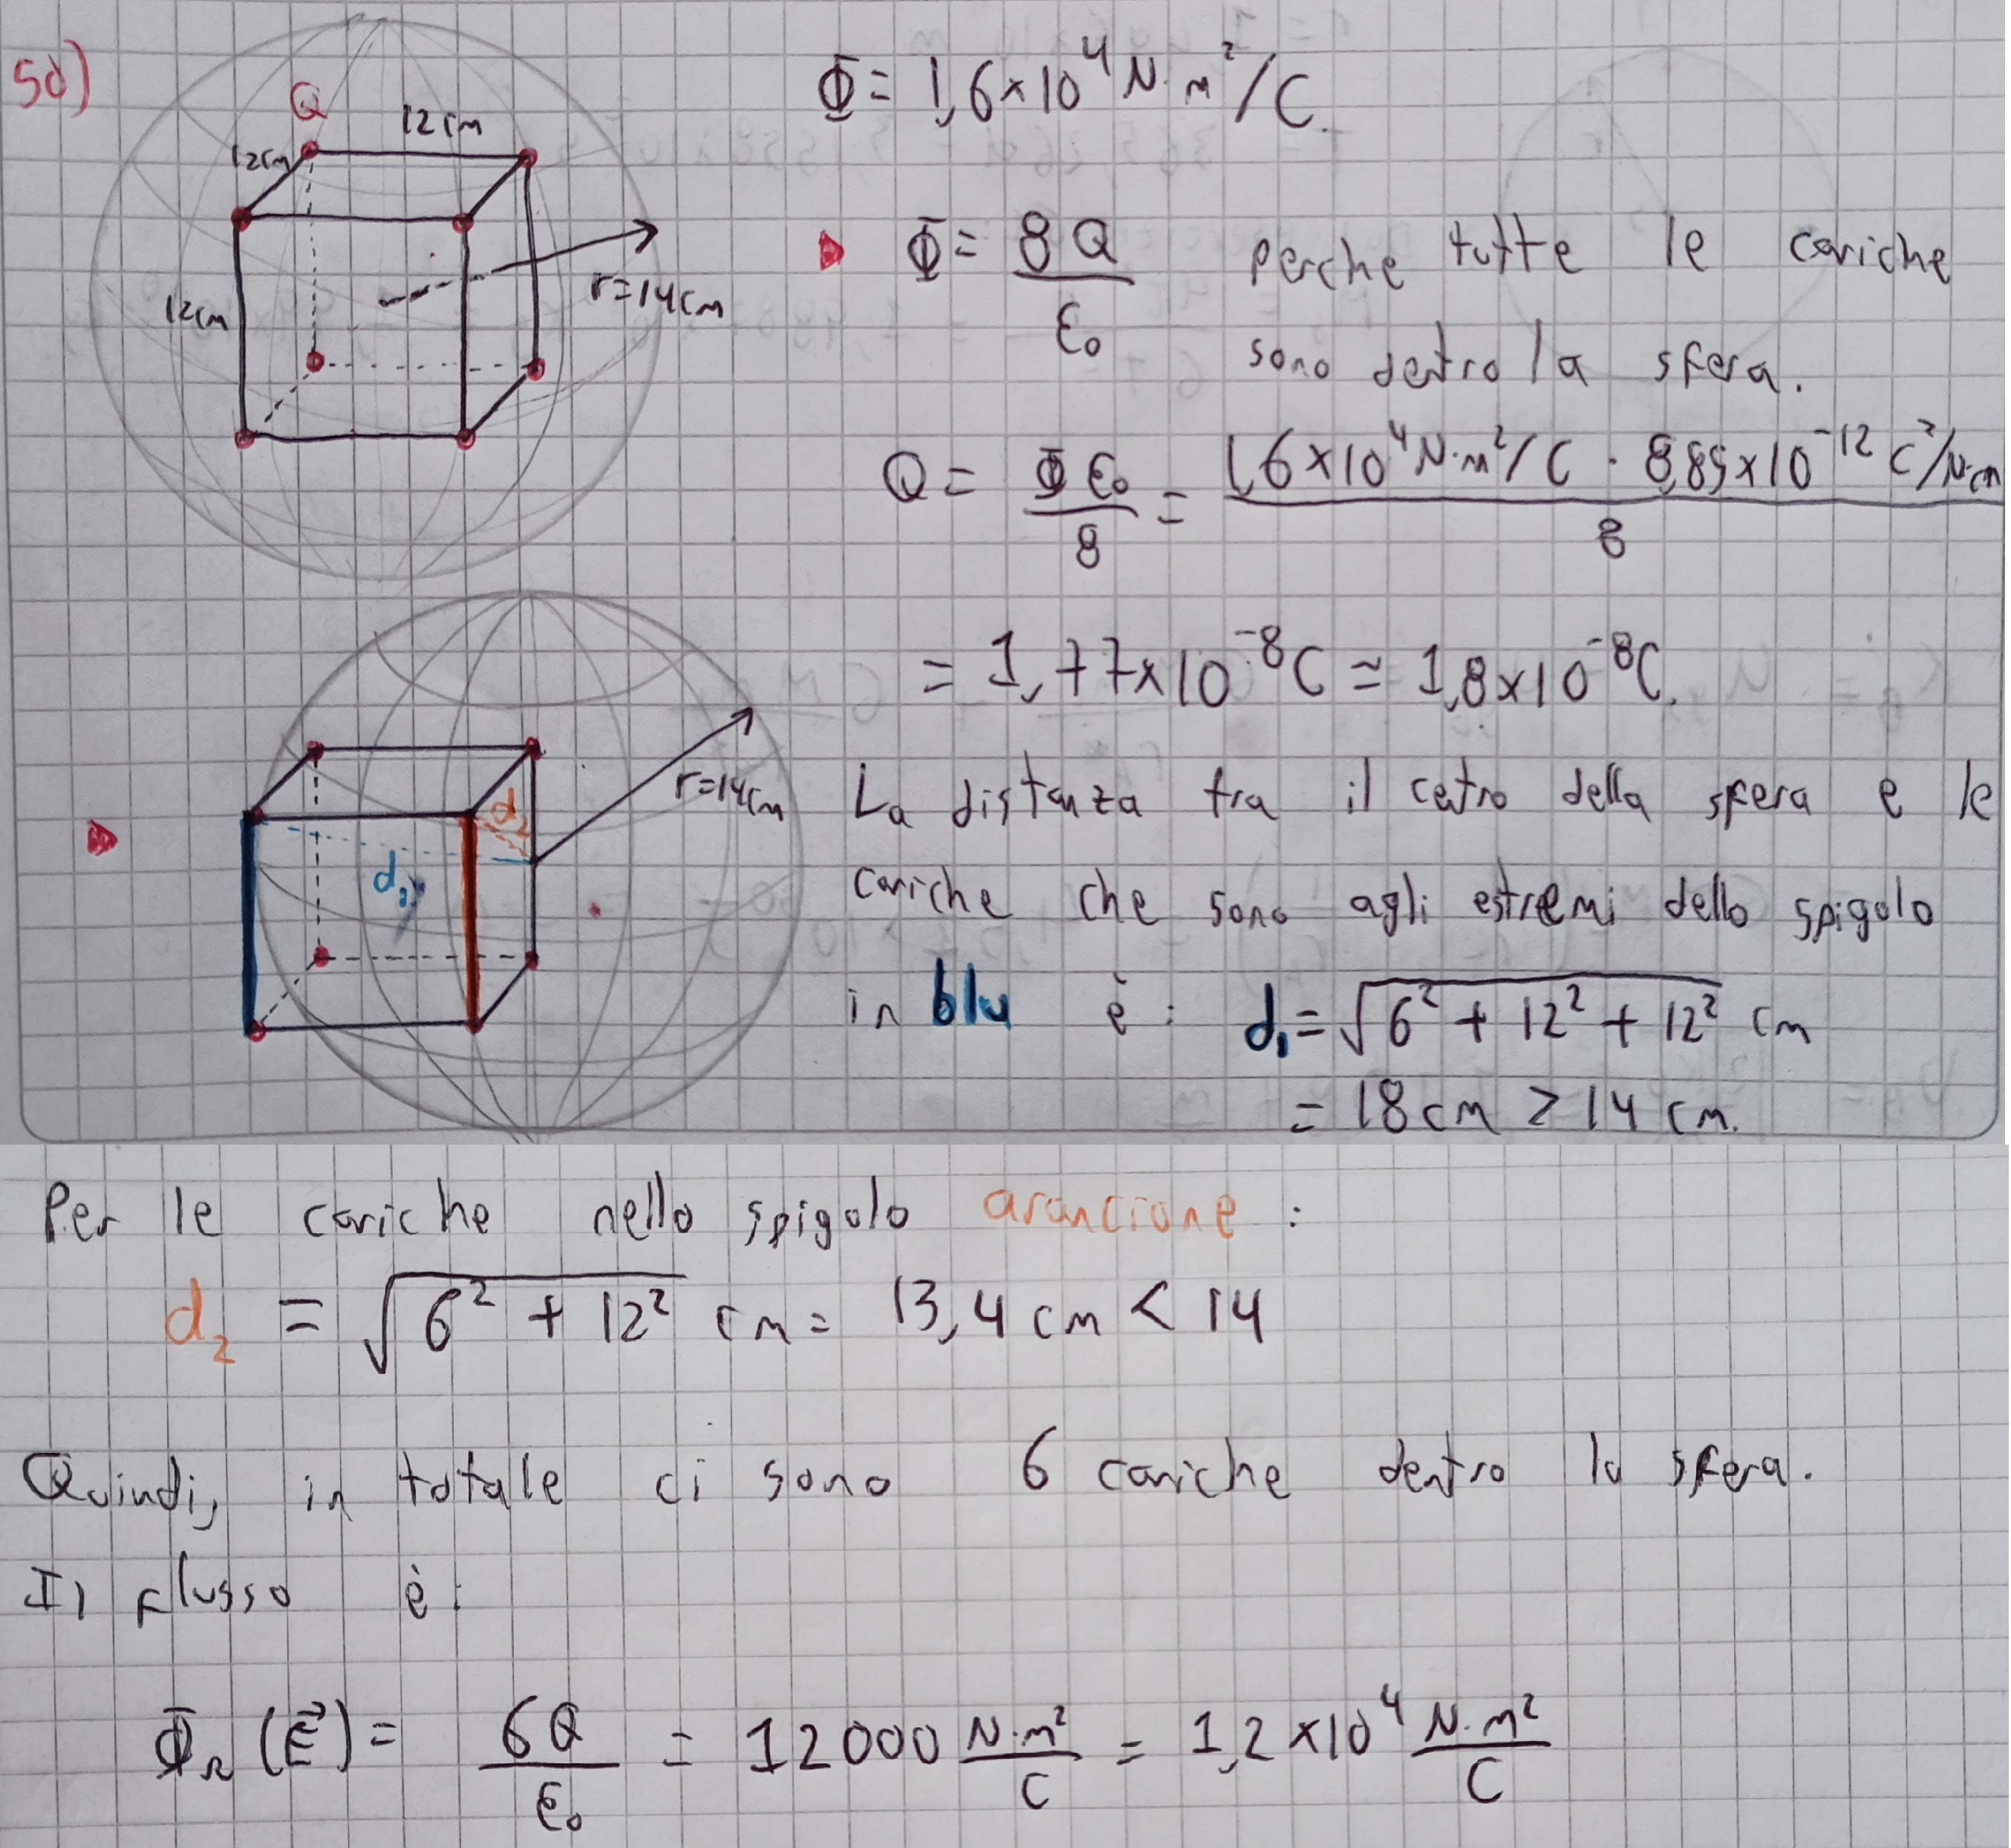 50)
Q
12cm
12cm
12cm
r=14cm
Φ = 1,6×10⁴ N·m²/C.
Φ = 8Q/ε₀ perche tutte le cariche
sono dentro la sfera.
Q = Φε₀/8 = 1,6×10⁴ N·m²/C · 8,85×10⁻¹² C²/N·m / 8
= 1,77×10⁻⁸ C ≃ 1,8×10⁻⁸ C.
r=14cm
d₂
d₁
La distanza tra il centro della sfera e le
cariche che sono agli estremi dello spigolo
in blu è: d₁ = √6² + 12² + 12² cm
= 18 cm > 14 cm.
Per le cariche nello spigolo arancione :
d₂ = √6² + 12² cm = 13,4 cm < 14
Quindi, in totale ci sono 6 cariche dentro la sfera.
Il flusso è:
(E⃗) = 6Q/ε₀ = 12000 N·m²/C = 1,2×10⁴ N·m²/C